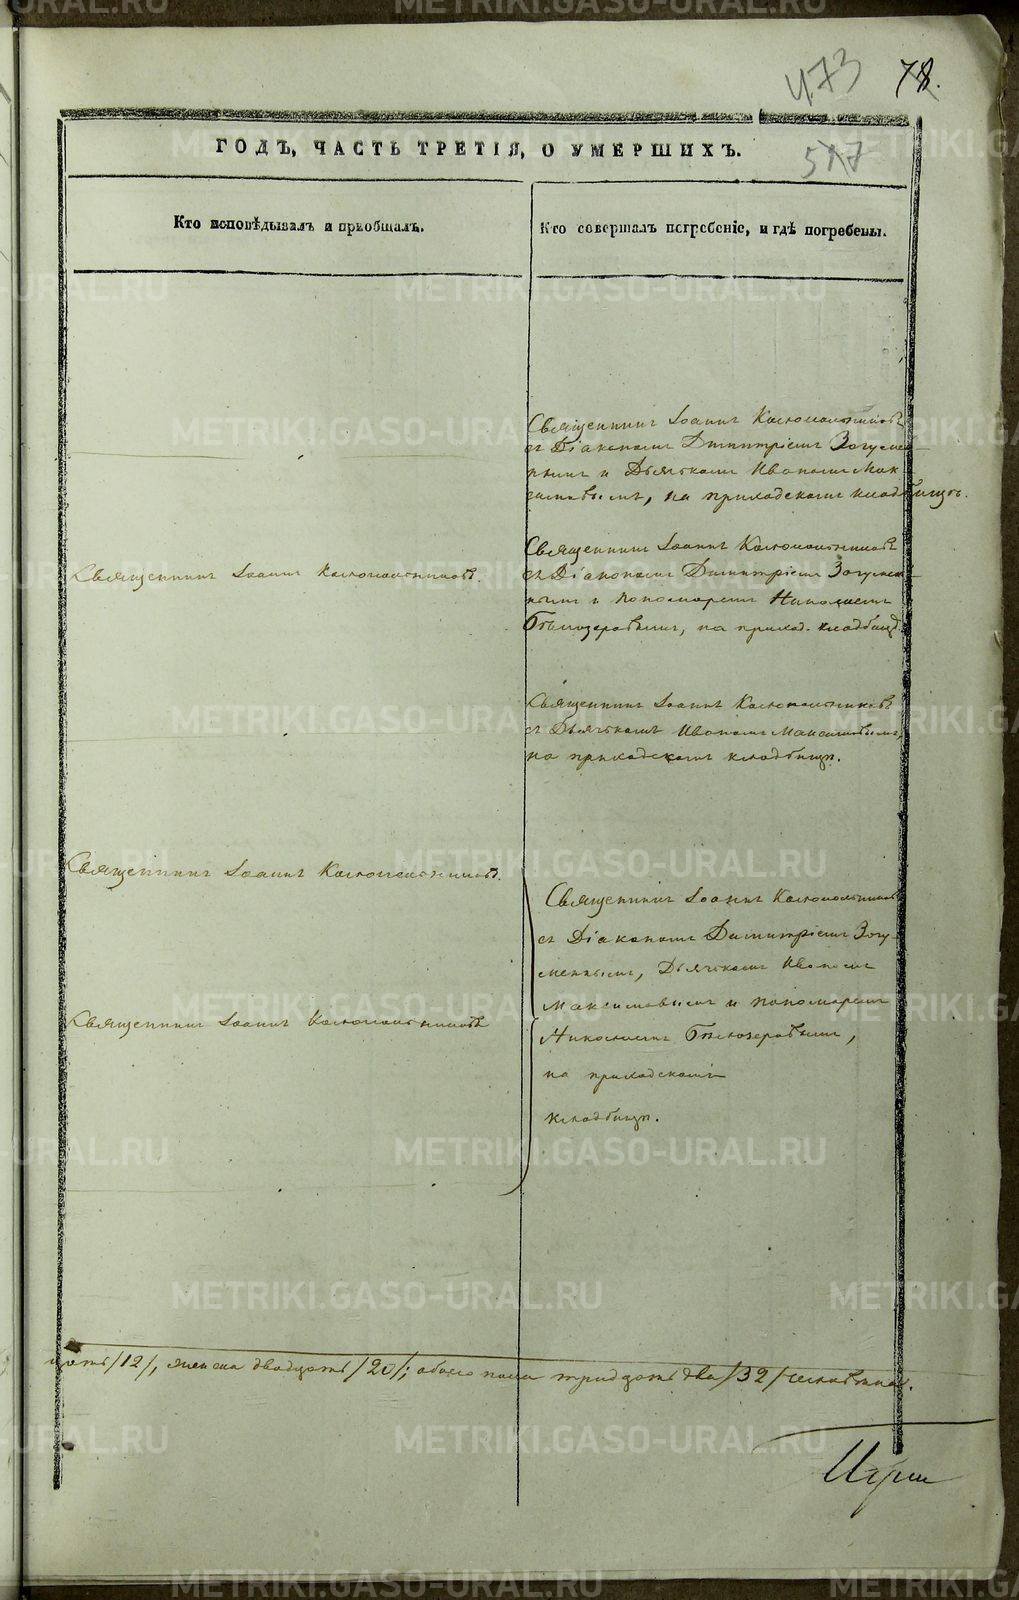 473
78.
517
ГОДЪ, ЧАСТЬ ТРЕТІЯ, О УМЕРШИХЪ.
Кто исповѣдывалъ и пріобщалъ.
Кто совершалъ погребеніе, и гдѣ погребены.
Священникъ Іоаннъ
съ Діакономъ Димитріемъ Загумен-
нымъ и Дьячкомъ Иваномъ Мак-
симовымъ, на приходскомъ кладбищѣ.
Священникъ Іоаннъ
Священникъ Іоаннъ
съ Діакономъ Димитріемъ Загумен-
нымъ и пономаремъ Николаемъ
Бѣлозеровымъ, на приход. кладбищѣ.
Священникъ Іоаннъ
съ Дьячкомъ Иваномъ Максимовымъ,
на приходскомъ кладбищѣ.
Священникъ Іоаннъ
Священникъ Іоаннъ
съ Діакономъ Димитріемъ Загу-
меннымъ, Дьячкомъ Иваномъ
Максимовымъ и пономаремъ
Николаемъ Бѣлозеровымъ,
на приходскомъ
кладбищѣ.
Священникъ Іоаннъ
цать /12/, женска двадцать /20/; обоего пола тридцать два /32/ человѣка.
METRIKI.GASO-URAL.RU